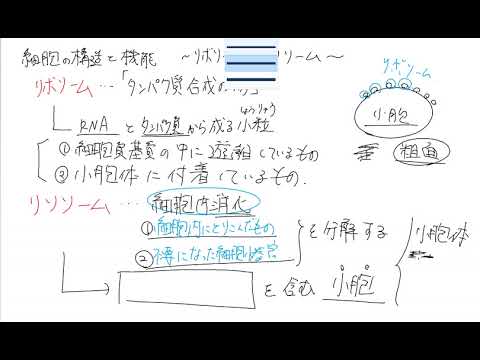 細胞の構造と機能 ～リボソーム～
リボソーム…「タンパク質合成の
リボソーム
小胞
粗面
RNAとタンパク質から成る小粒
りゅう
①細胞質基質の中に遊離しているもの
②小胞体に付着しているもの.
リソソーム…細胞内消化
①細胞内にとりこんだもの
②不要になった細胞小器官
を分解する
小胞体
を含む小胞